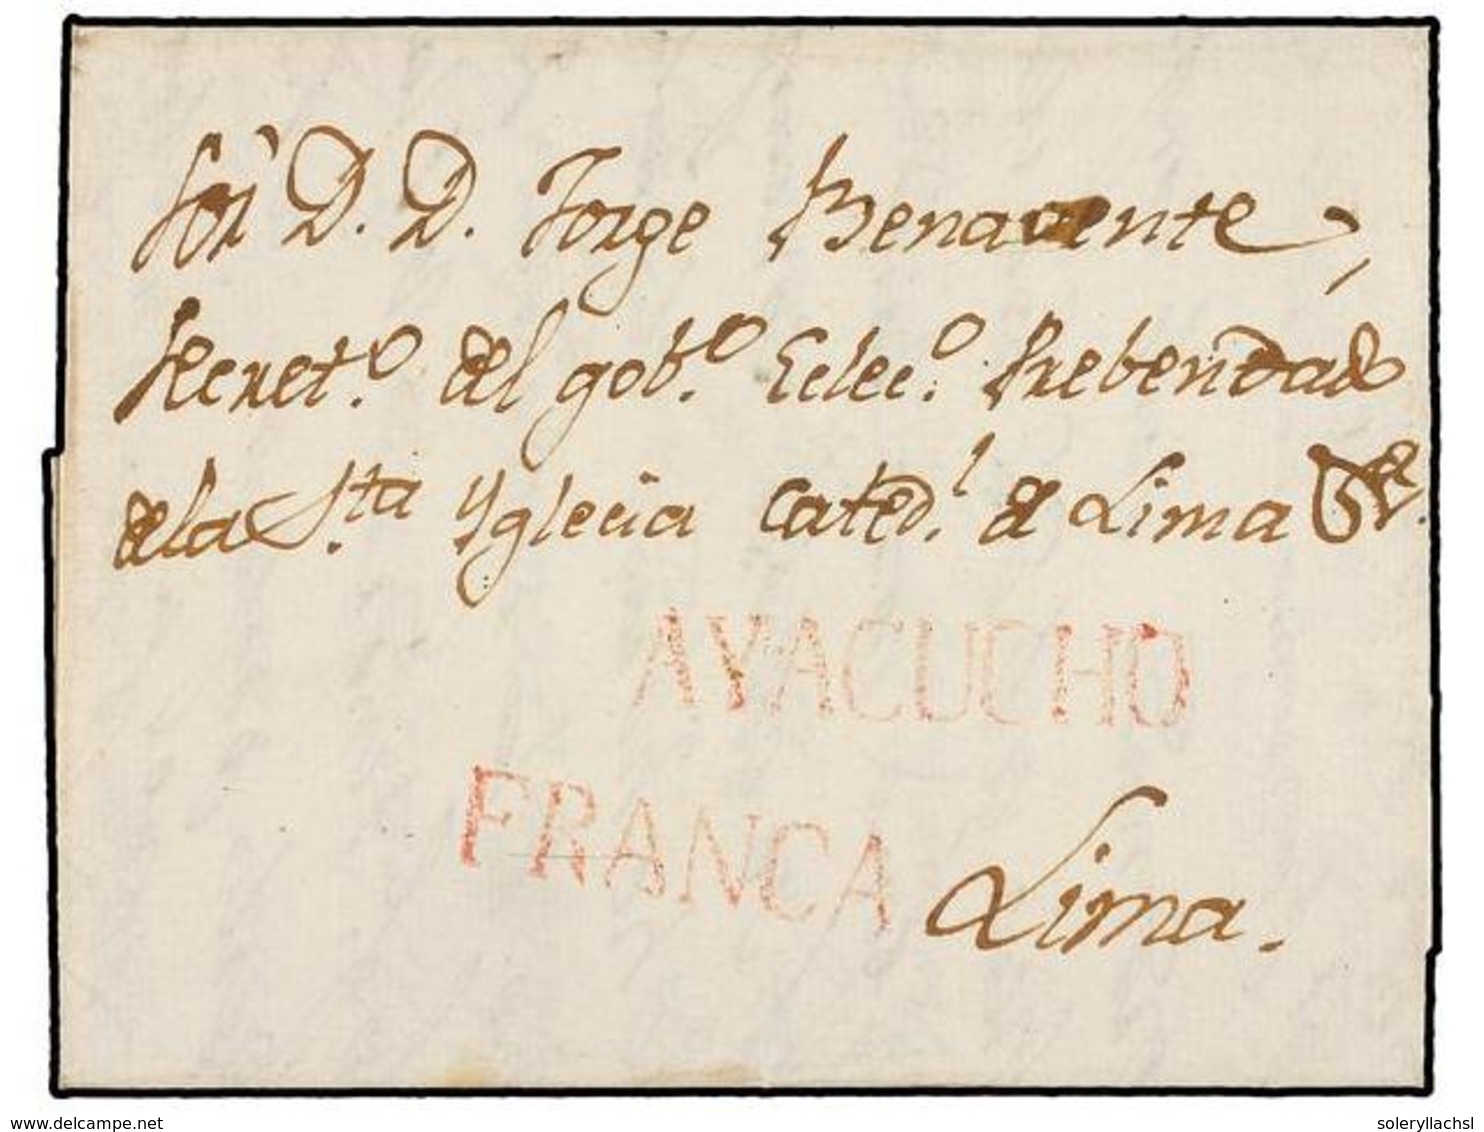 Sor. D. D. Jorge Benavente,
Secret.o del gob.o Eclec.o Prebendado
de la S.ta Yglecia Cated.l de Lima &a.
AYACUCHO
FRANCA
Lima.
www.delcampe.net
soleryllachsl